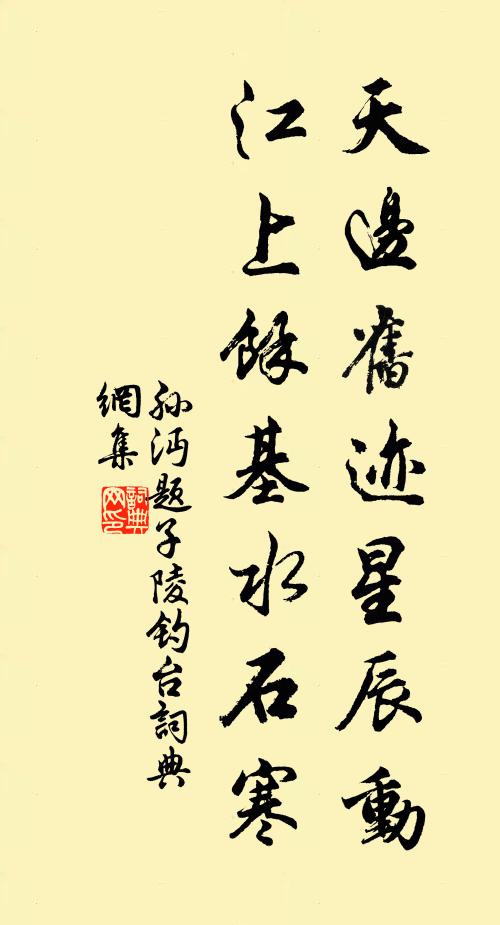 天邊舊迹星辰動
江上餘基水石寒
孙沔题子陵钓台詞典
網集
詞典
网印